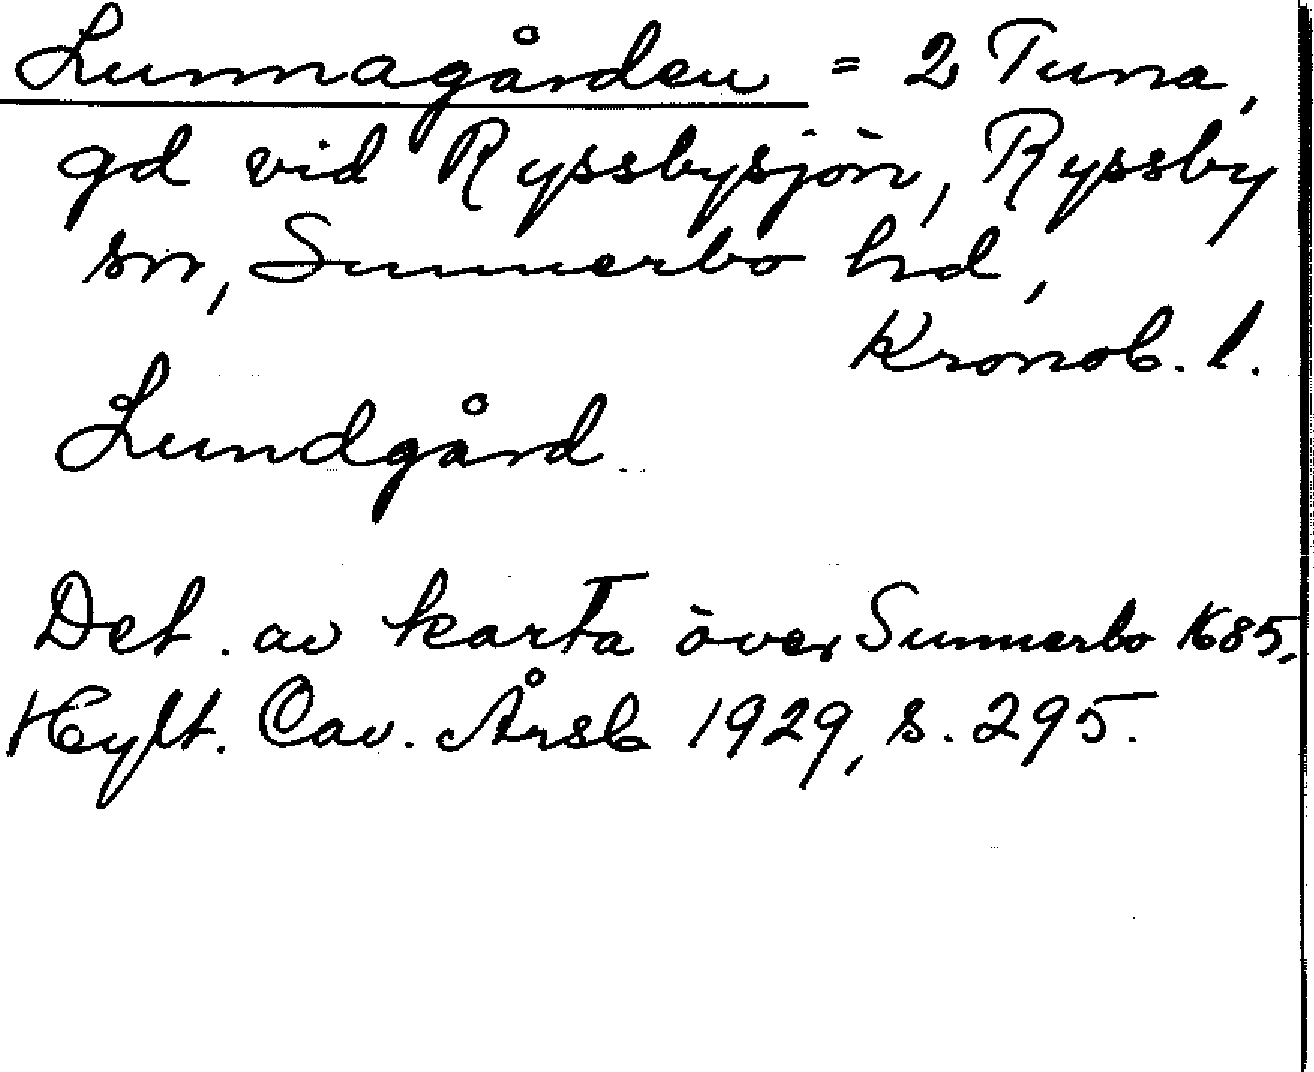 Lunnagården = 2 Tuna,
gd vid Ryssbysjön, Ryssby
sn, Sunnerbo hd,
Kronob. l.
Lundgård
Det. av karta över Sunnerbo 1685,
Hylt. Cav. Årsb 1929, s. 295.